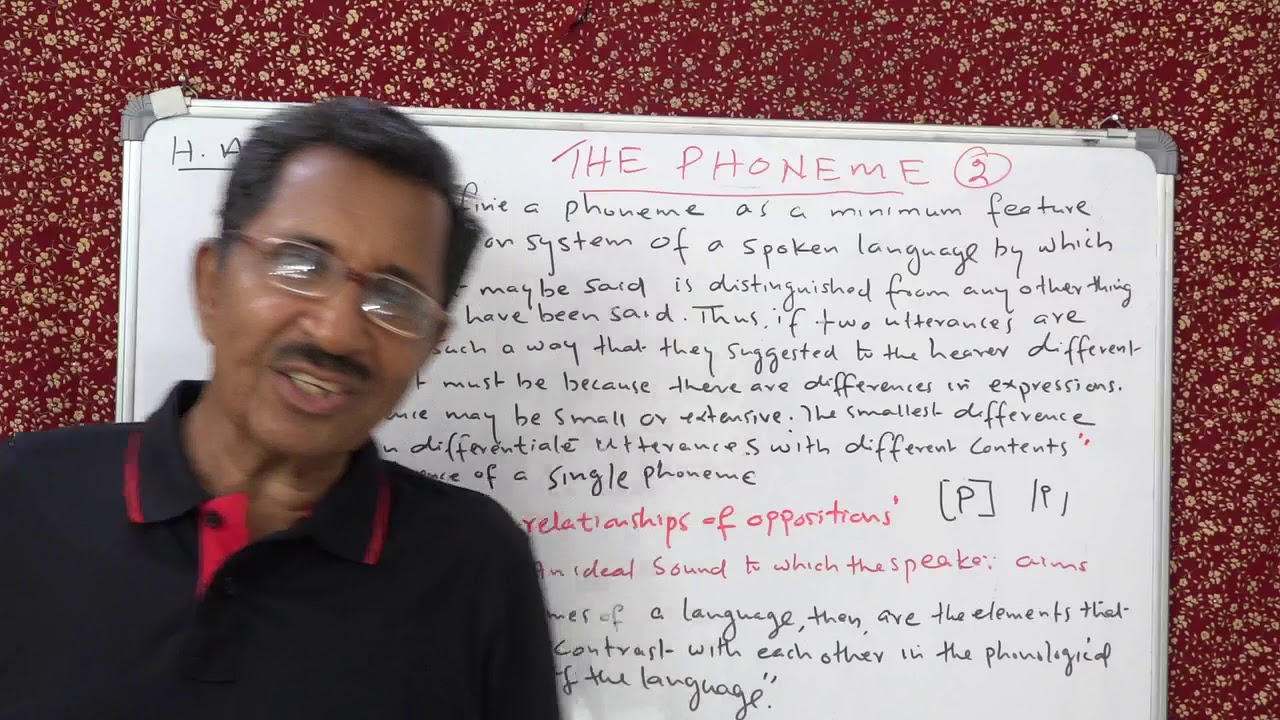 H. A
THE PHONEME 2
fine a phoneme as a minimum feature
on system of a spoken language by which
t may be said is distinguished from any other thing
have been said. Thus, if two utterances are
such a way that they suggested to the hearer different
t must be because there are differences in expressions.
nce may be small or extensive. The smallest difference
n differentiate utterances with different contents"
nce of a single phoneme
[P] /P/
relationships of oppositions'
An ideal sound to which the speaker aims
mes of a language, then, are the elements that
contrast with each other in the phonological
f the language."